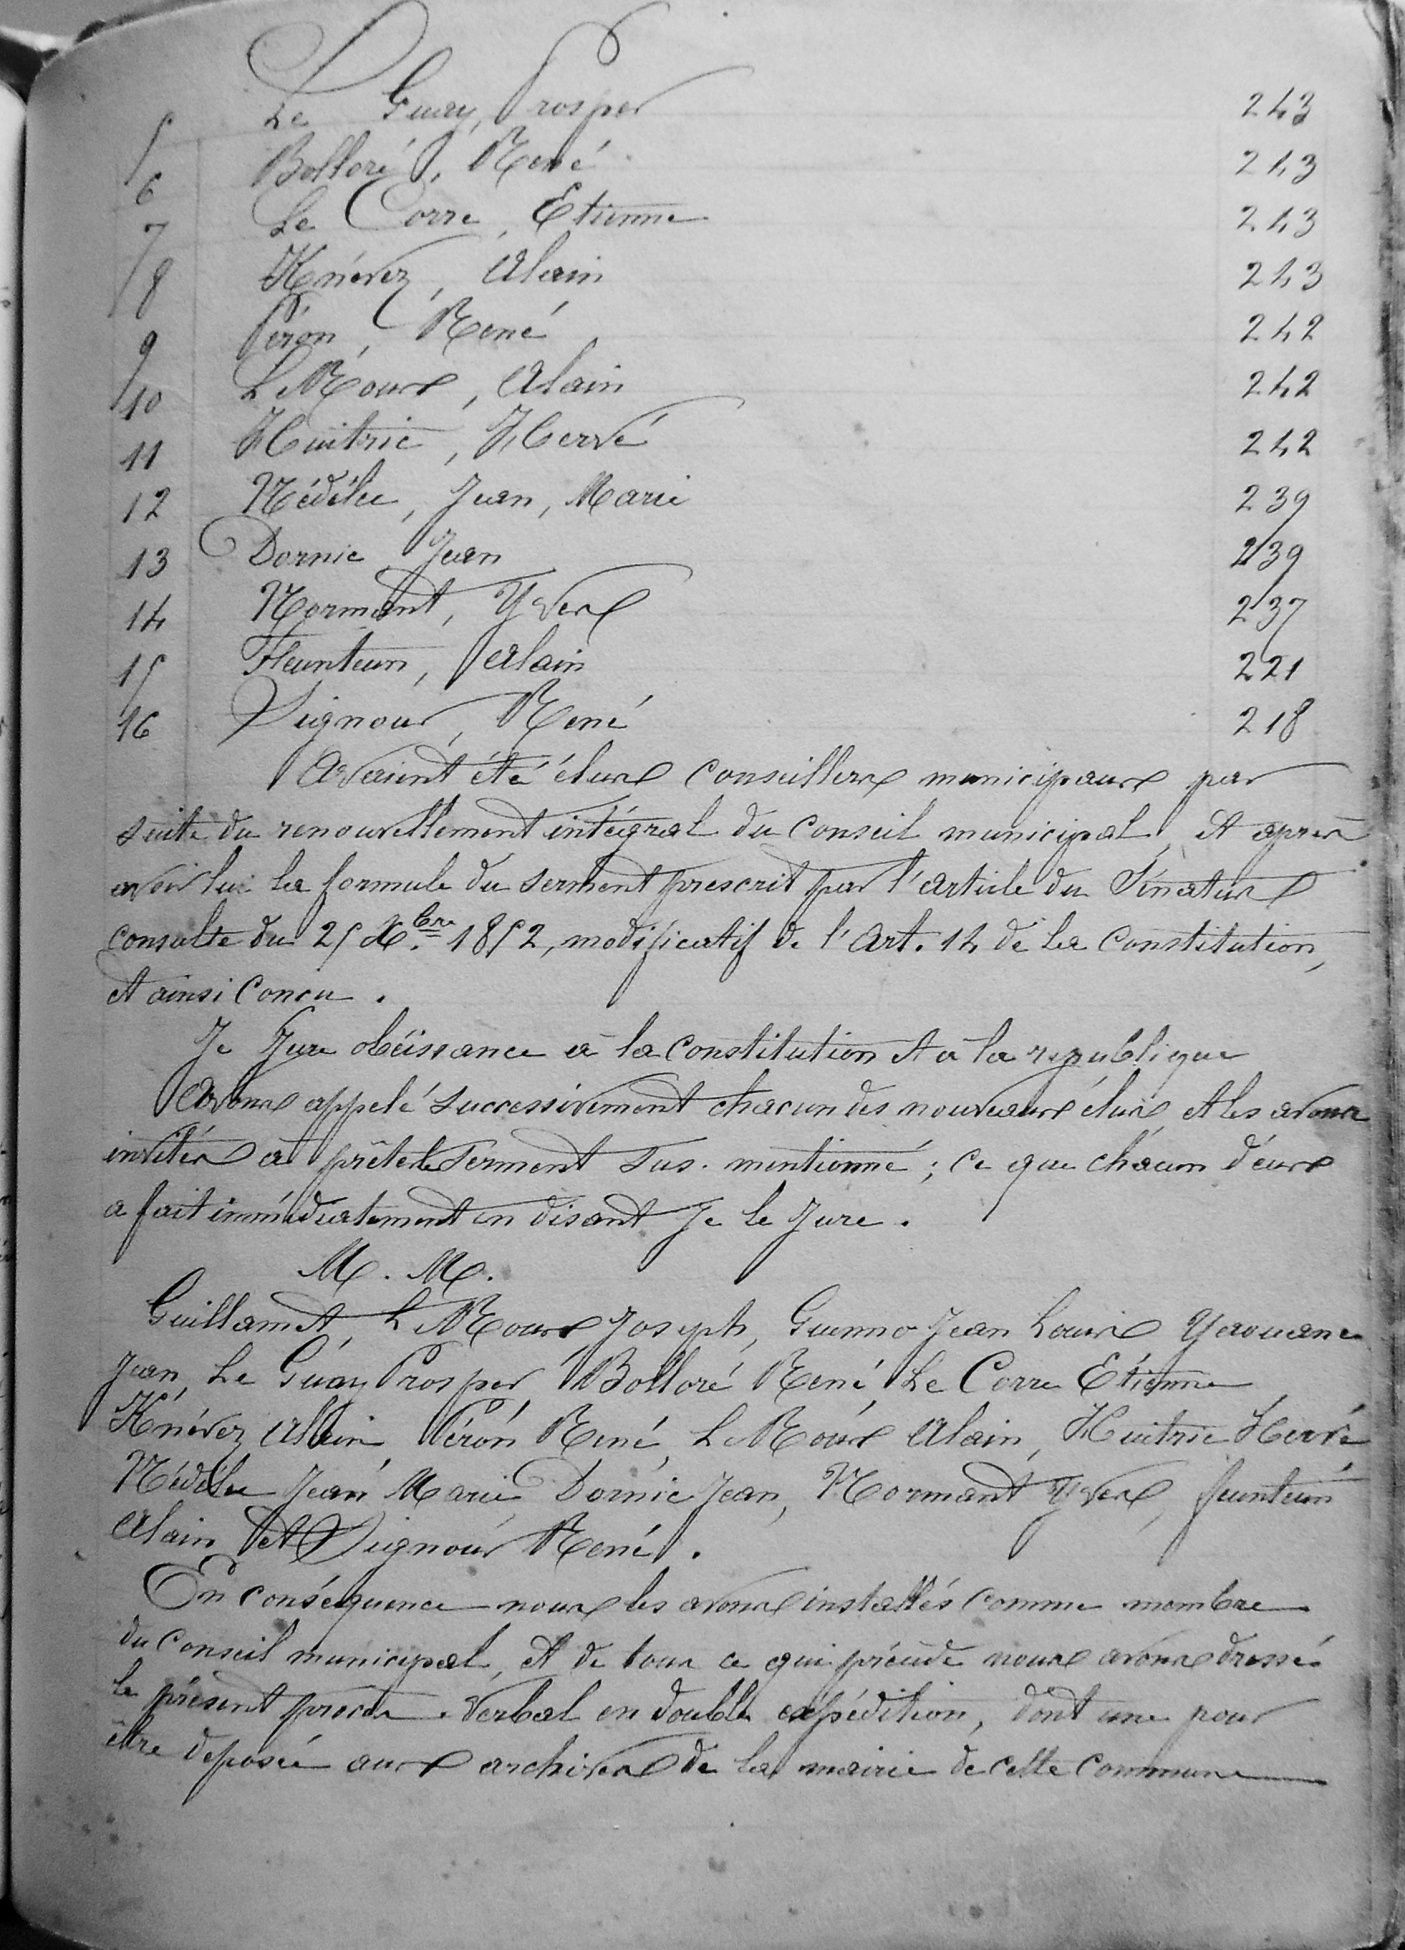 5 Le Guay, Prosper 243
6 Bolloré, René 243
7 Le Corre, Etienne 243
8 Knévez, Alain 243
9 Péron, René 242
10 Le Roux, Alain 242
11 Huitric, Hervé 242
12 Nédélec, Jean, Marie 239
13 Dornic Jean 239
14 Normant, Yves 237
15 Feunteun, Alain 221
16 Signour, René 218
Avaient été élus conseillers municipaux par
suite du renouvellement intégral du conseil municipal, et après
avoir lu la formule du serment prescrit par l'article du Sénatus
consulte du 25 Xbre 1852, modificatif de l'Art. 14 de la Constitution,
et ainsi concu.
Je Jure obéissance à la constitution et a la republique
Avons appelé successivement chacun des nouveaux élus, et les avons
invités à prêter le serment sus-mentionné; ce que chacun d'eux
a fait immédiatement en disant Je le Jure.
M. M.
Guillamet, Le Roux Joseph, Guenno Jean Louis Yaouanc
Jean, Le Guay Prosper, Bolloré René, Le Corre Etienne,
Knévez Alain Péron René, Le Roux Alain, Huitric Hervé,
Nédélec Jean Marie, Dornic Jean, Normant Yves, feunteun
Alain et Signour René.
En conséquence nous les avons installés comme membre
du conseil municipal, et de tous ce qui précède nous avons dressé
le présent procès-verbal en double expédition, dont une pour
être deposée aux archives de la mairie de cette commune